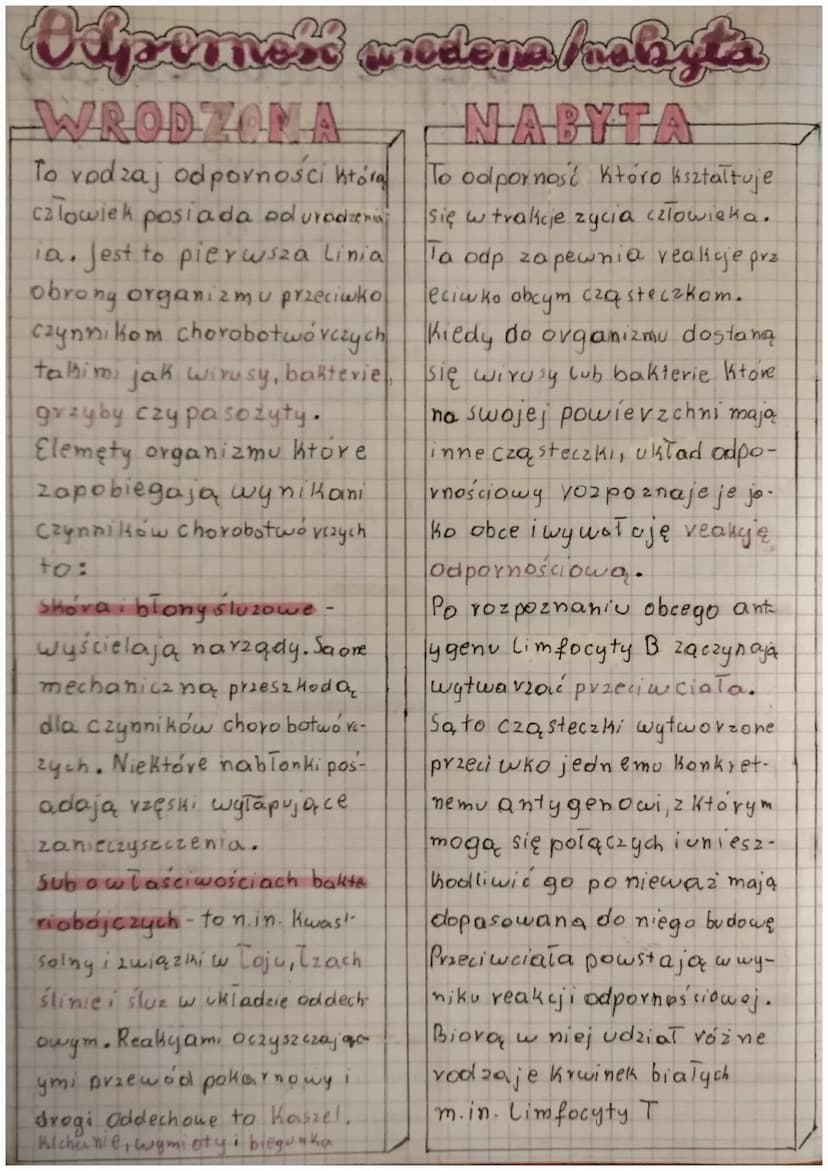 Odporność wrodzona/nabyta
WRODZONA
To rodzaj odporności którą
człowiek posiada od urodzenia
ia. Jest to pierwsza linia
obrony organizmu przeciwko
czynnikom chorobotwórczych
takimi jak wirusy, bakterie,
grzyby czy pasożyty.
Elemęty organizmu które
zapobiegają wynikani
czynników chorobotwórczych
to:
skóra i błony śluzowe -
wyścielają narządy. Są one
mechaniczną przeszkodą
dla czynników chorobotwór-
zych. Niektóre nabłonki poś-
adają rzęski wyłapujące
zanieczyszczenia.
Sub o właściwościach bakte
riobójczych - to n.in. kwas
solny i związki w łoju, łzach
ślinie i śluz w układzie oddech
owym. Reakcjami oczyszczając
ymi przewód pokarnowy i
drogi oddechowe to kaszel,
kichanie, wymioty i biegunka
NABYTA
To odporność któro kształtuje
się w trakcje zycia człowieka.
Ta odp zapewnia reakcje prz
eciwko obcym cząsteczkom.
Kiedy do organizmu dostaną
się wirusy lub bakterie które
na swojej powierzchni mają
inne cząsteczki, układ odpo-
rnościowy rozpoznaje je ja-
ko obce i wywołuję reakcję
odpornościową.
Po rozpoznaniu obcego ant
ygenu Limfocyty B zaczynają
wytwarzać przeciwciała.
Są to cząsteczki wytworzone
przeciwko jednemu konkret-
nemu antygenowi, z którym
mogą się połączych i uniesz-
kodliwić go ponieważ mają
dopasowaną do niego budowę
Przeciwciała powstają w wy-
niku reakcji odpornościowej.
Biorą w niej udział różne
rodzaje krwinek białych
m.in. Limfocyty T